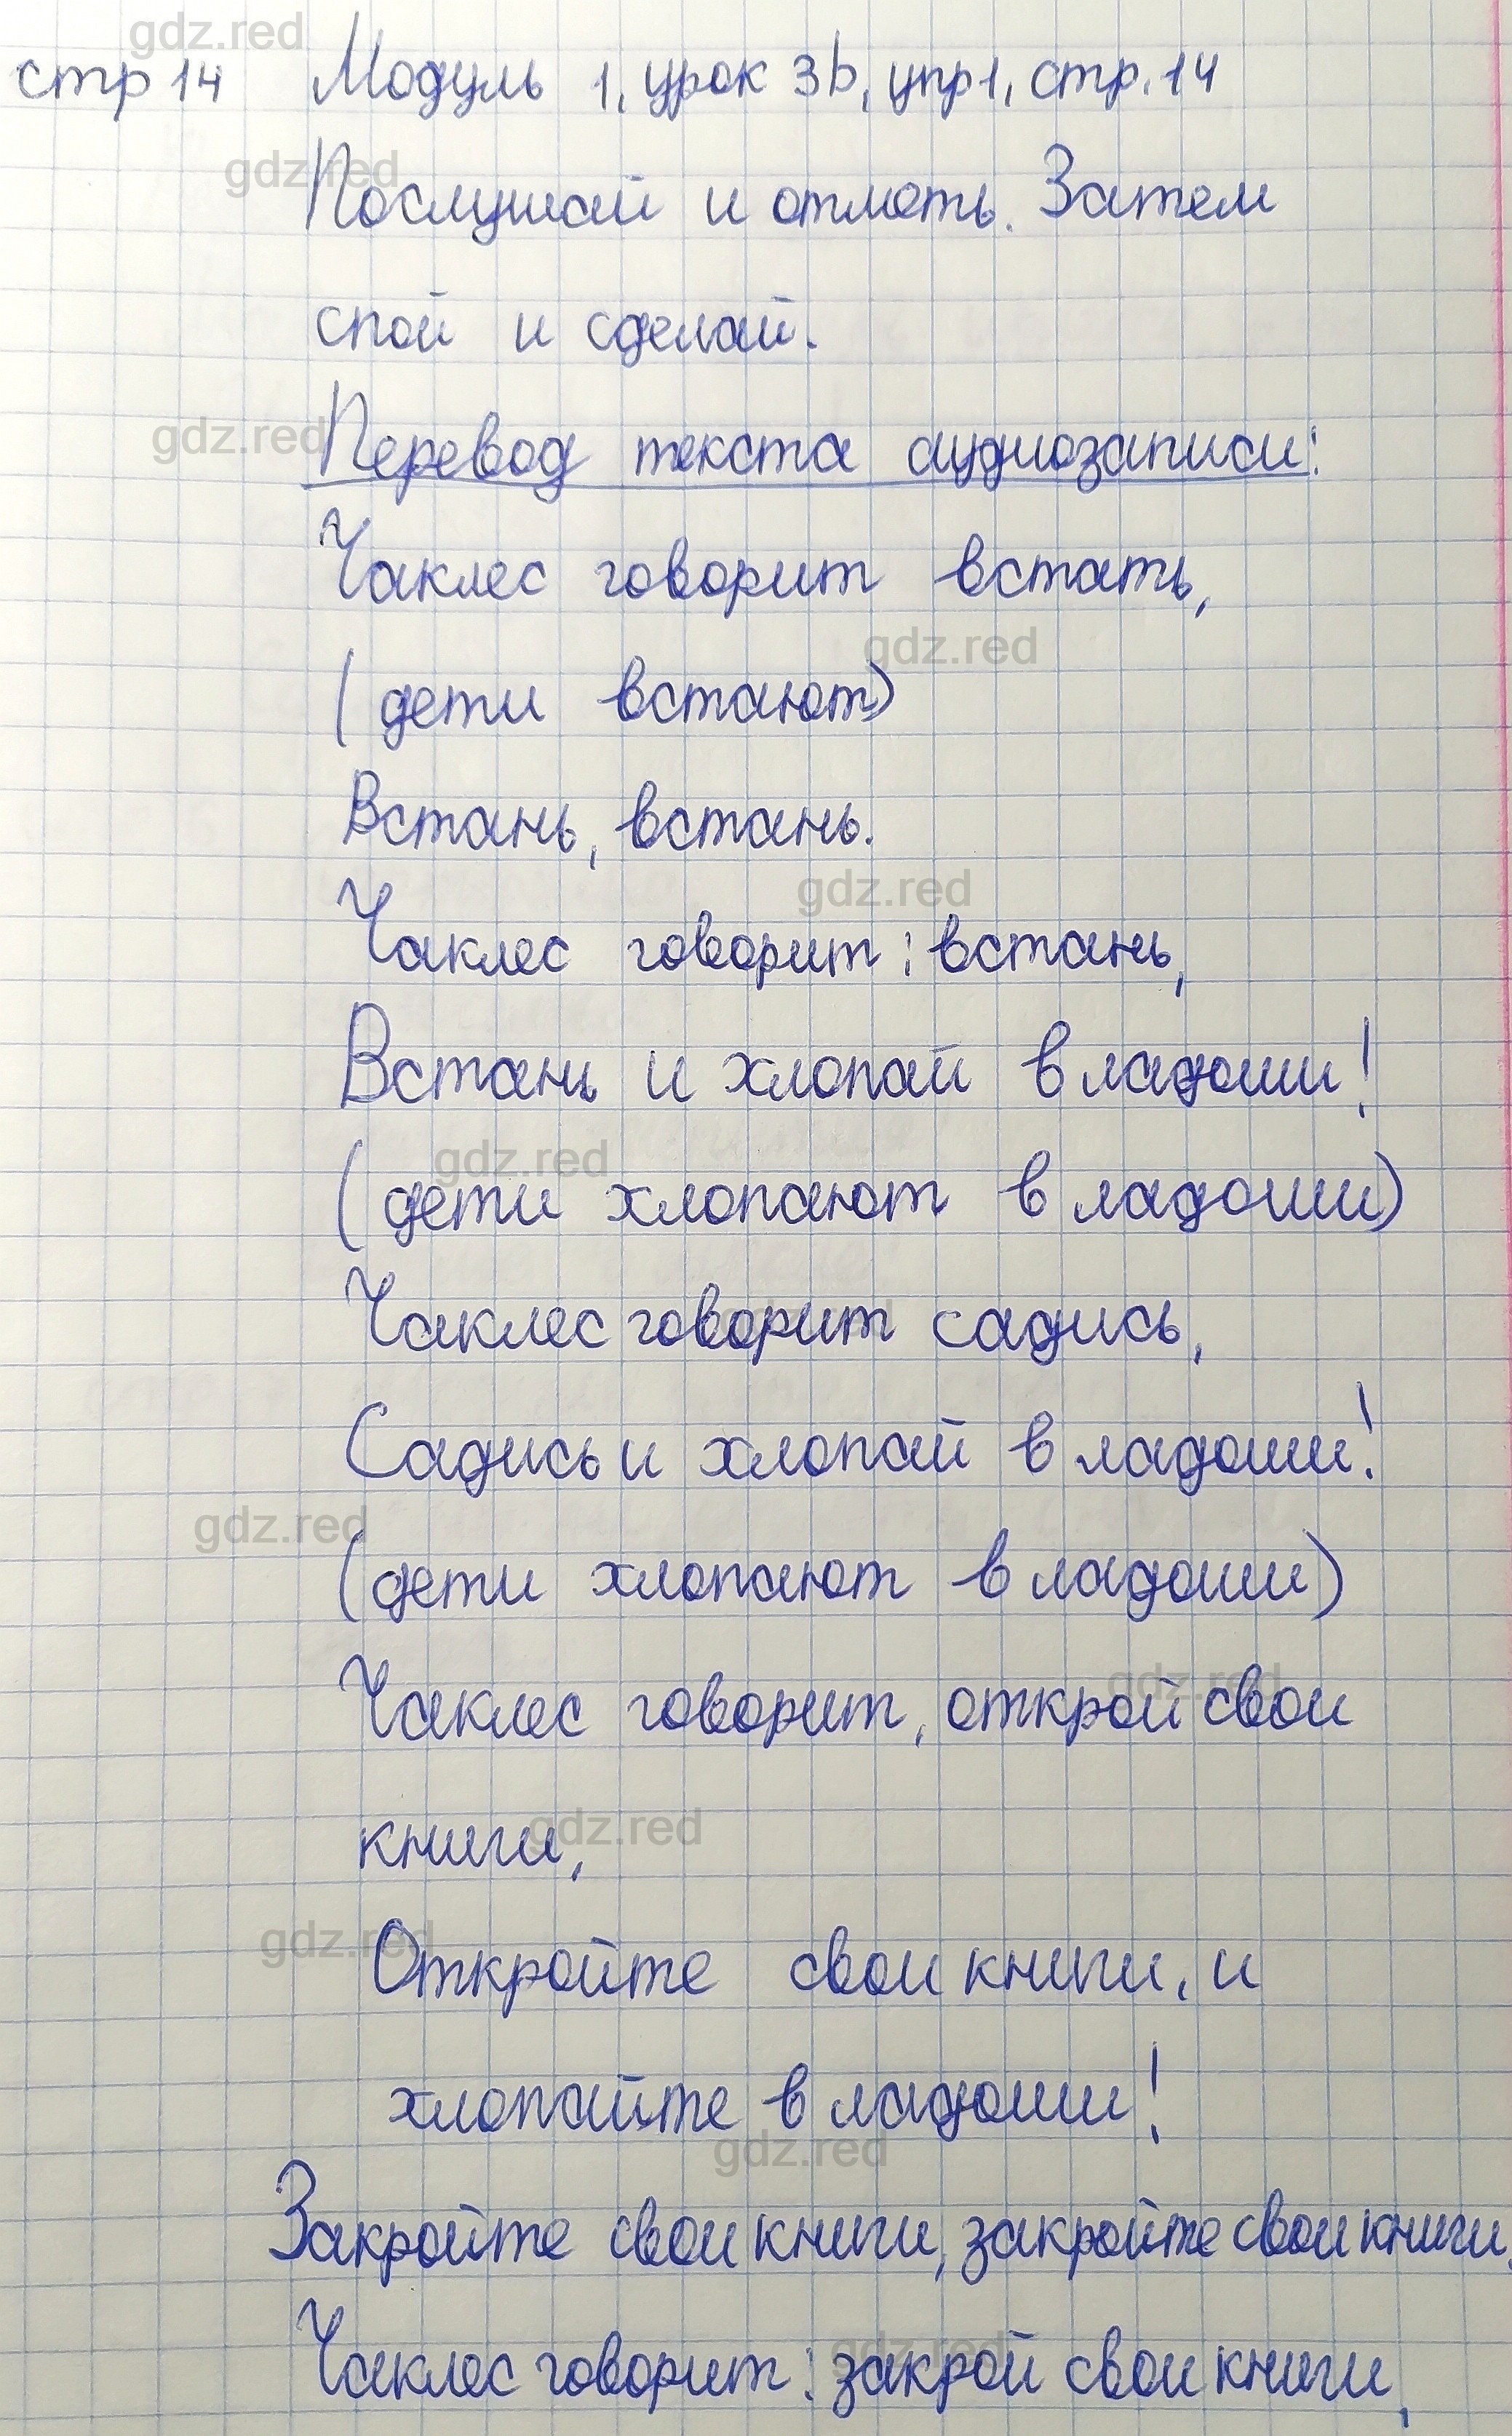 стр 14 Модуль 1, урок 3b, упр1, стр. 14
Послушай и отметь. Затем
спой и сделай.
Перевод текста аудиозаписи:
Чаклес говорит встать,
(дети встают)
Встань, встань.
Чаклес говорит: встань,
Встань и хлопай в ладоши!
(дети хлопают в ладоши)
Чаклес говорит садись,
Садись и хлопай в ладоши!
(дети хлопают в ладоши)
Чаклес говорит, открой свои
книги,
Откройте свои книги, и
хлопайте в ладоши!
Закройте свои книги, закройте свои книги,
Чаклес говорит: закрой свои книги,
gdz.red
gdz.red
gdz.red
gdz.red
gdz.red
gdz.red
gdz.red
gdz.red
gdz.red
gdz.red
gdz.red
gdz.red
gdz.red